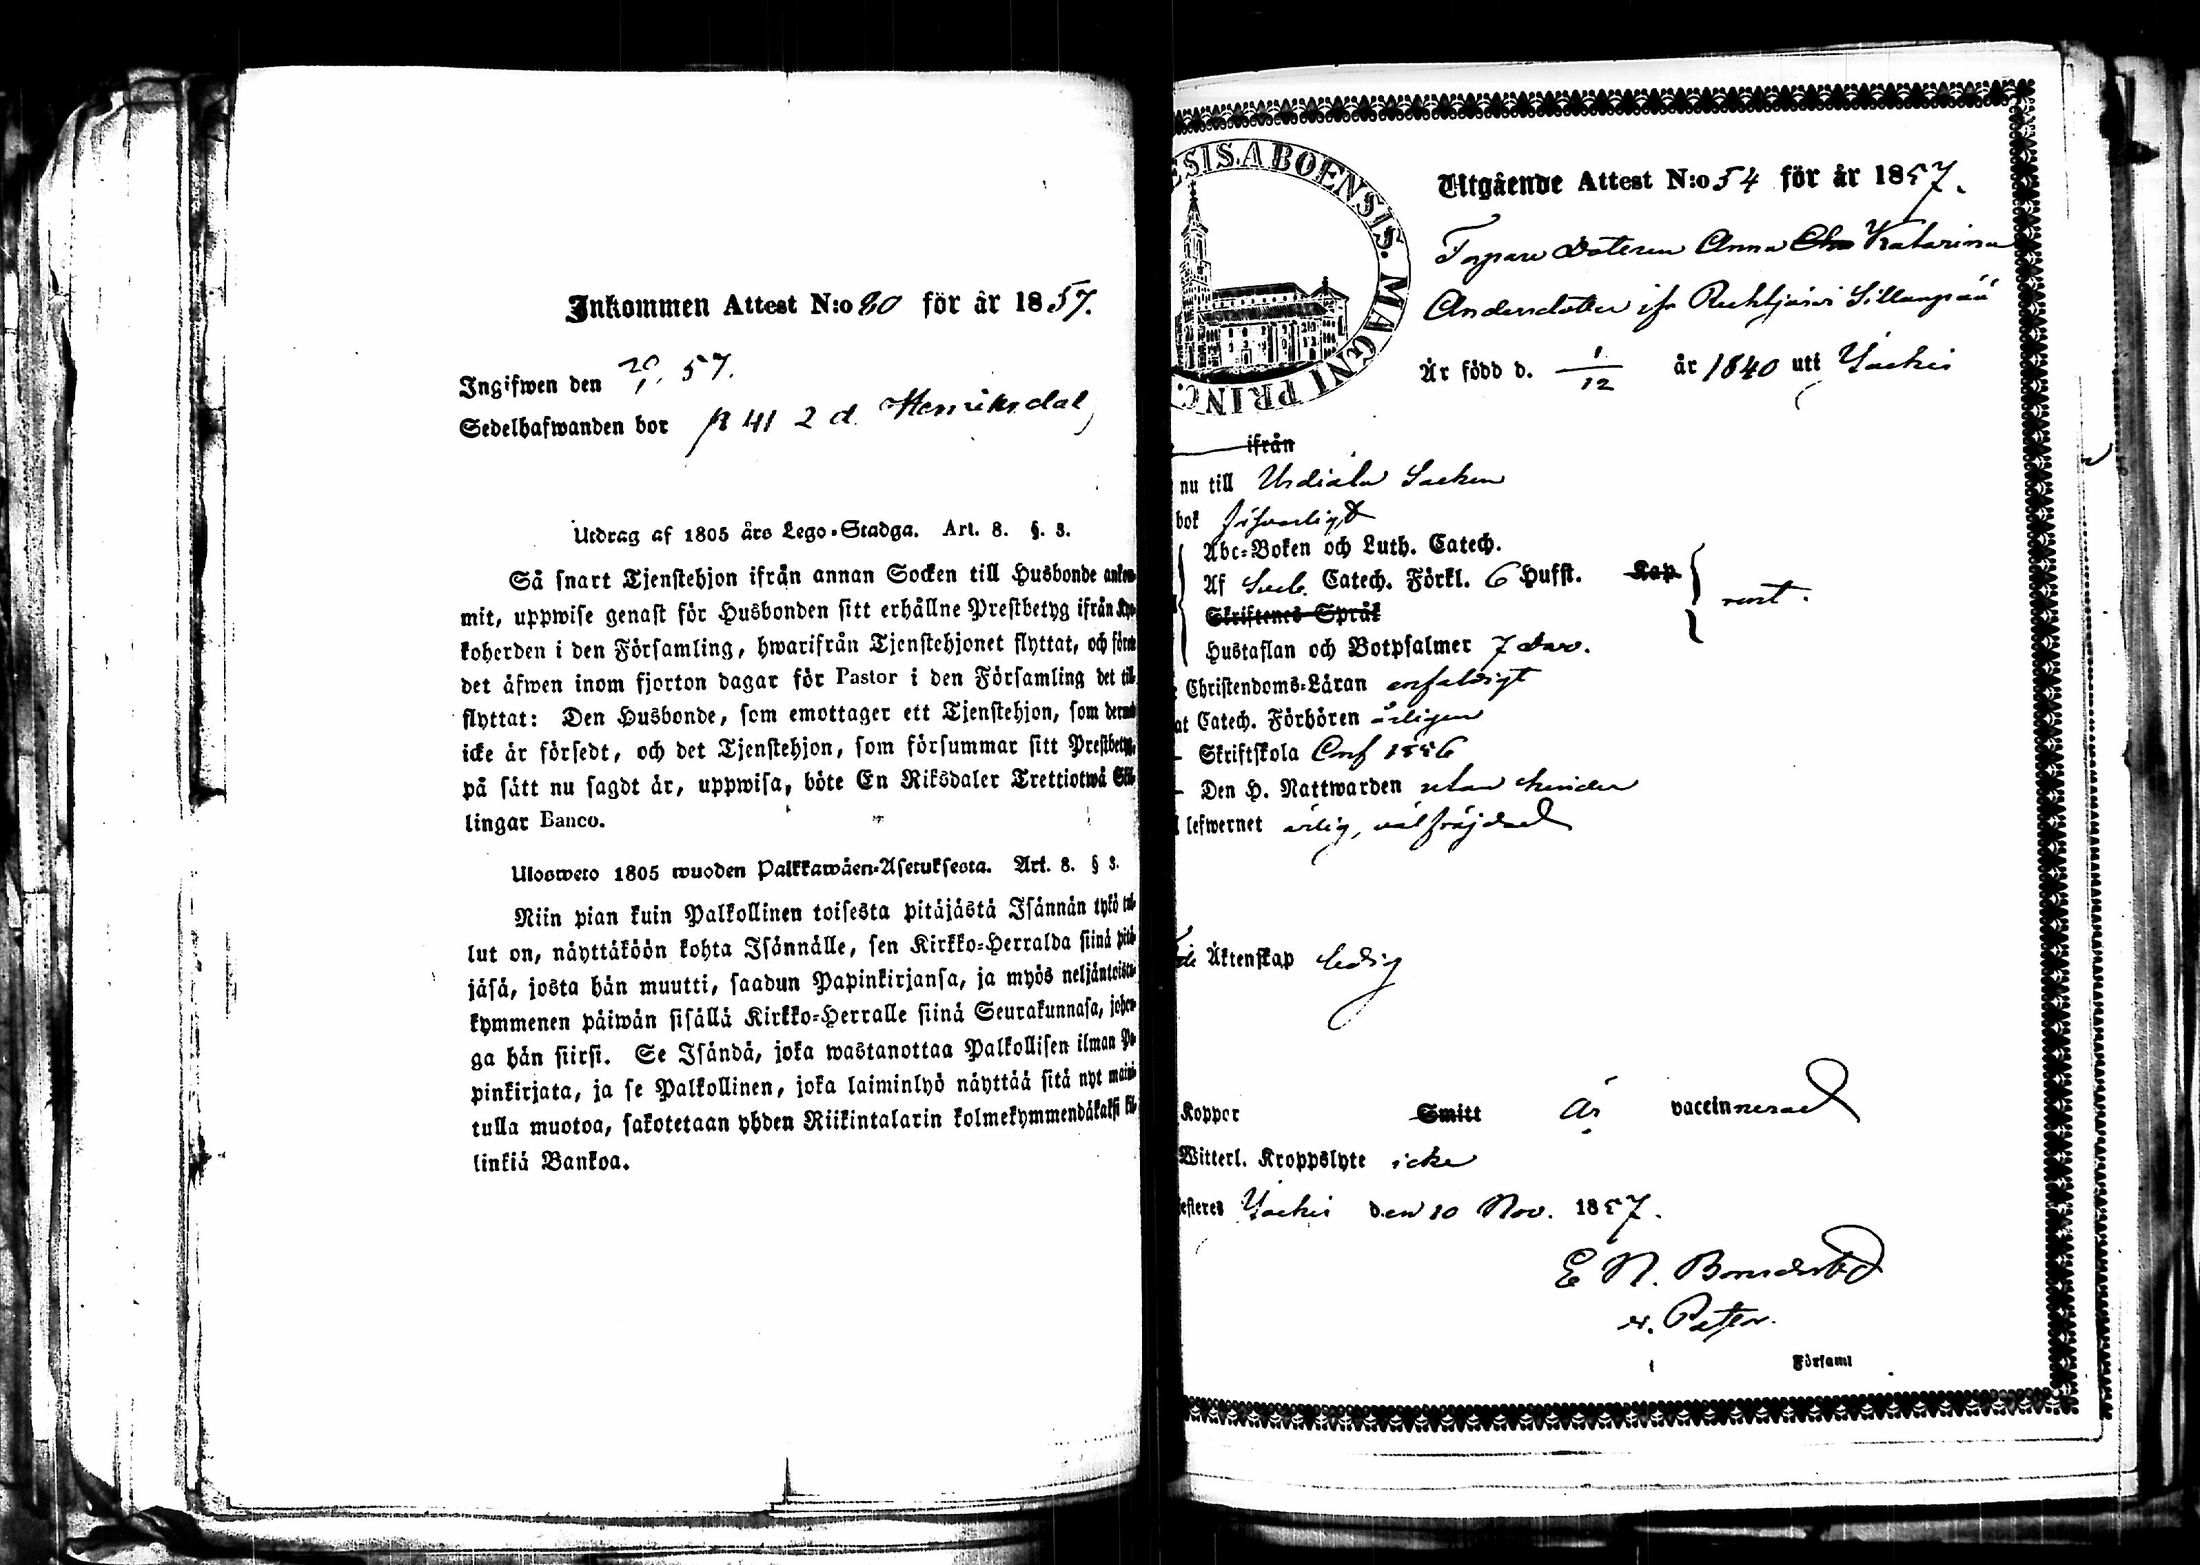 Inkommen Attest N:o 80 för år 1857.
Ingifwen den 57.
Sedelhafwanden bor p 41 2 d. Henriksdal
Utdrag af 1805 års Lego-Stadga. Art. 8. §. 3.
Så snart Tjenstehjon ifrån annan Socken till Husbonde ankom-
mit, uppwise genast för Husbonden sitt erhållne Prestbetyg ifrån Kyr-
koherden i den Församling, hwarifrån Tjenstehjonet flyttat, och förete
det äfwen inom fjorton dagar för Pastor i den Församling det till-
flyttat: Den Husbonde, som emottager ett Tjenstehjon, som dermed
icke är försedt, och det Tjenstehjon, som försummar sitt Prestbetyg,
på sätt nu sagdt är, uppwisa, böte En Riksdaler Trettiotwå Skil-
lingar Banco.
Ulosweto 1805 wuoden Palkkawäen-Asetuksesta. Art. 8. § 3.
Niin pian kuin Palkollinen toisesta pitäjästä Isännän tykö tul-
lut on, näyttäköön kohta Isännälle, sen Kirkko-Herralda siinä pitä-
jäsä, josta hän muutti, saadun Papinkirjansa, ja myös neljäntoista-
kymmenen päiwän sisällä Kirkko-Herralle siinä Seurakunnasa, johon-
ga hän siirsi. Se Isändä, joka wastanottaa Palkollisen ilman Pa-
pinkirjata, ja se Palkollinen, joka laiminlyö näyttää sitä nyt maini-
tulla muotoa, sakotetaan yhden Riikintalarin kolmekymmendäkaksi kil-
linkiä Bankoa.
ESIS ABOENSIS. MAGNI PRINC.
Utgående Attest N:o 54 för år 1857.
Torpare Dottren Anna Katarina
Andersdotter ifr Ruhtjärvi Sillanpää
Är född d. 1/12 år 1840 uti Jockis
ifrån
nu till Urdiala Socken
bok försvarligt
Abc-Boken och Luth. Catech.
Af Sveb. Catech. Förkl. 6 Hufst. Kap
Skriftenes Språk
rent.
Hustaflan och Botpsalmer 7 Dav.
Christendoms-Läran enfaldigt
at Catech. Förhören årligen
Skriftskola Conf 1856
Den H. Nattwarden utan hinder
lefwernet ärlig, välfräjdad
Äktenskap ledig
Koppor Smitt är vaccinnerad
Witterl. Kroppslyte icke
esteres Jockis den 10 Nov. 1857.
E N. Bonsdorff
v. Pastor.
i Församl